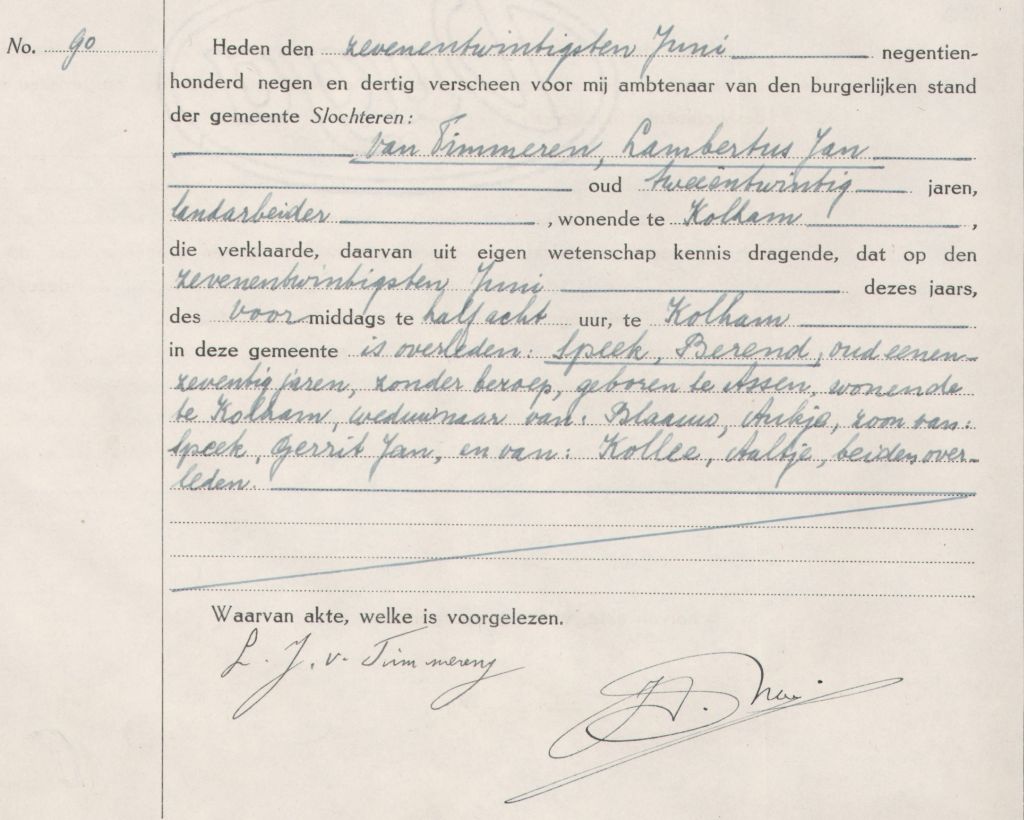 No. 90
Heden den zevenentwintigsten Juni negentien-
honderd negen en dertig verscheen voor mij ambtenaar van den burgerlijken stand
der gemeente Slochteren:
van Timmeren, Lambertus Jan
oud tweeëntwintig jaren,
landarbeider , wonende te Kolham ,
die verklaarde, daarvan uit eigen wetenschap kennis dragende, dat op den
zevenentwintigsten Juni dezes jaars,
des voormiddags te half acht uur, te Kolham
in deze gemeente is overleden: Speek, Berend, oud eenen-
zeventig jaren, zonder beroep, geboren te Assen, wonende
te Kolham, weduwnaar van: Blaauw, Aukje, zoon van:
Speek, Gerrit Jan, en van: Kollee, Aaltje, beiden over-
leden.
Waarvan akte, welke is voorgelezen.
L. J. v. Timmeren